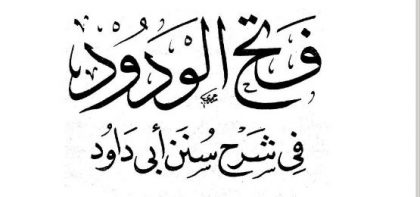 فَتْحُ الْوَدُود
فِي شَرْحِ سُنَنِ أَبِي دَاوُد